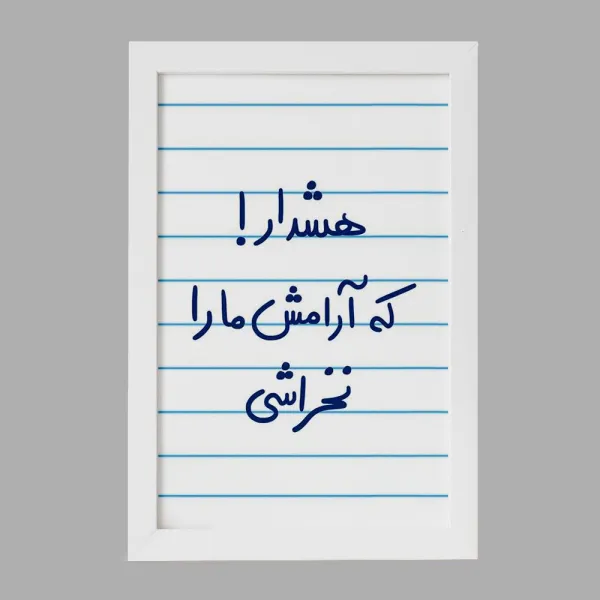 هشدار!
که آرامش ما را
نخراشی